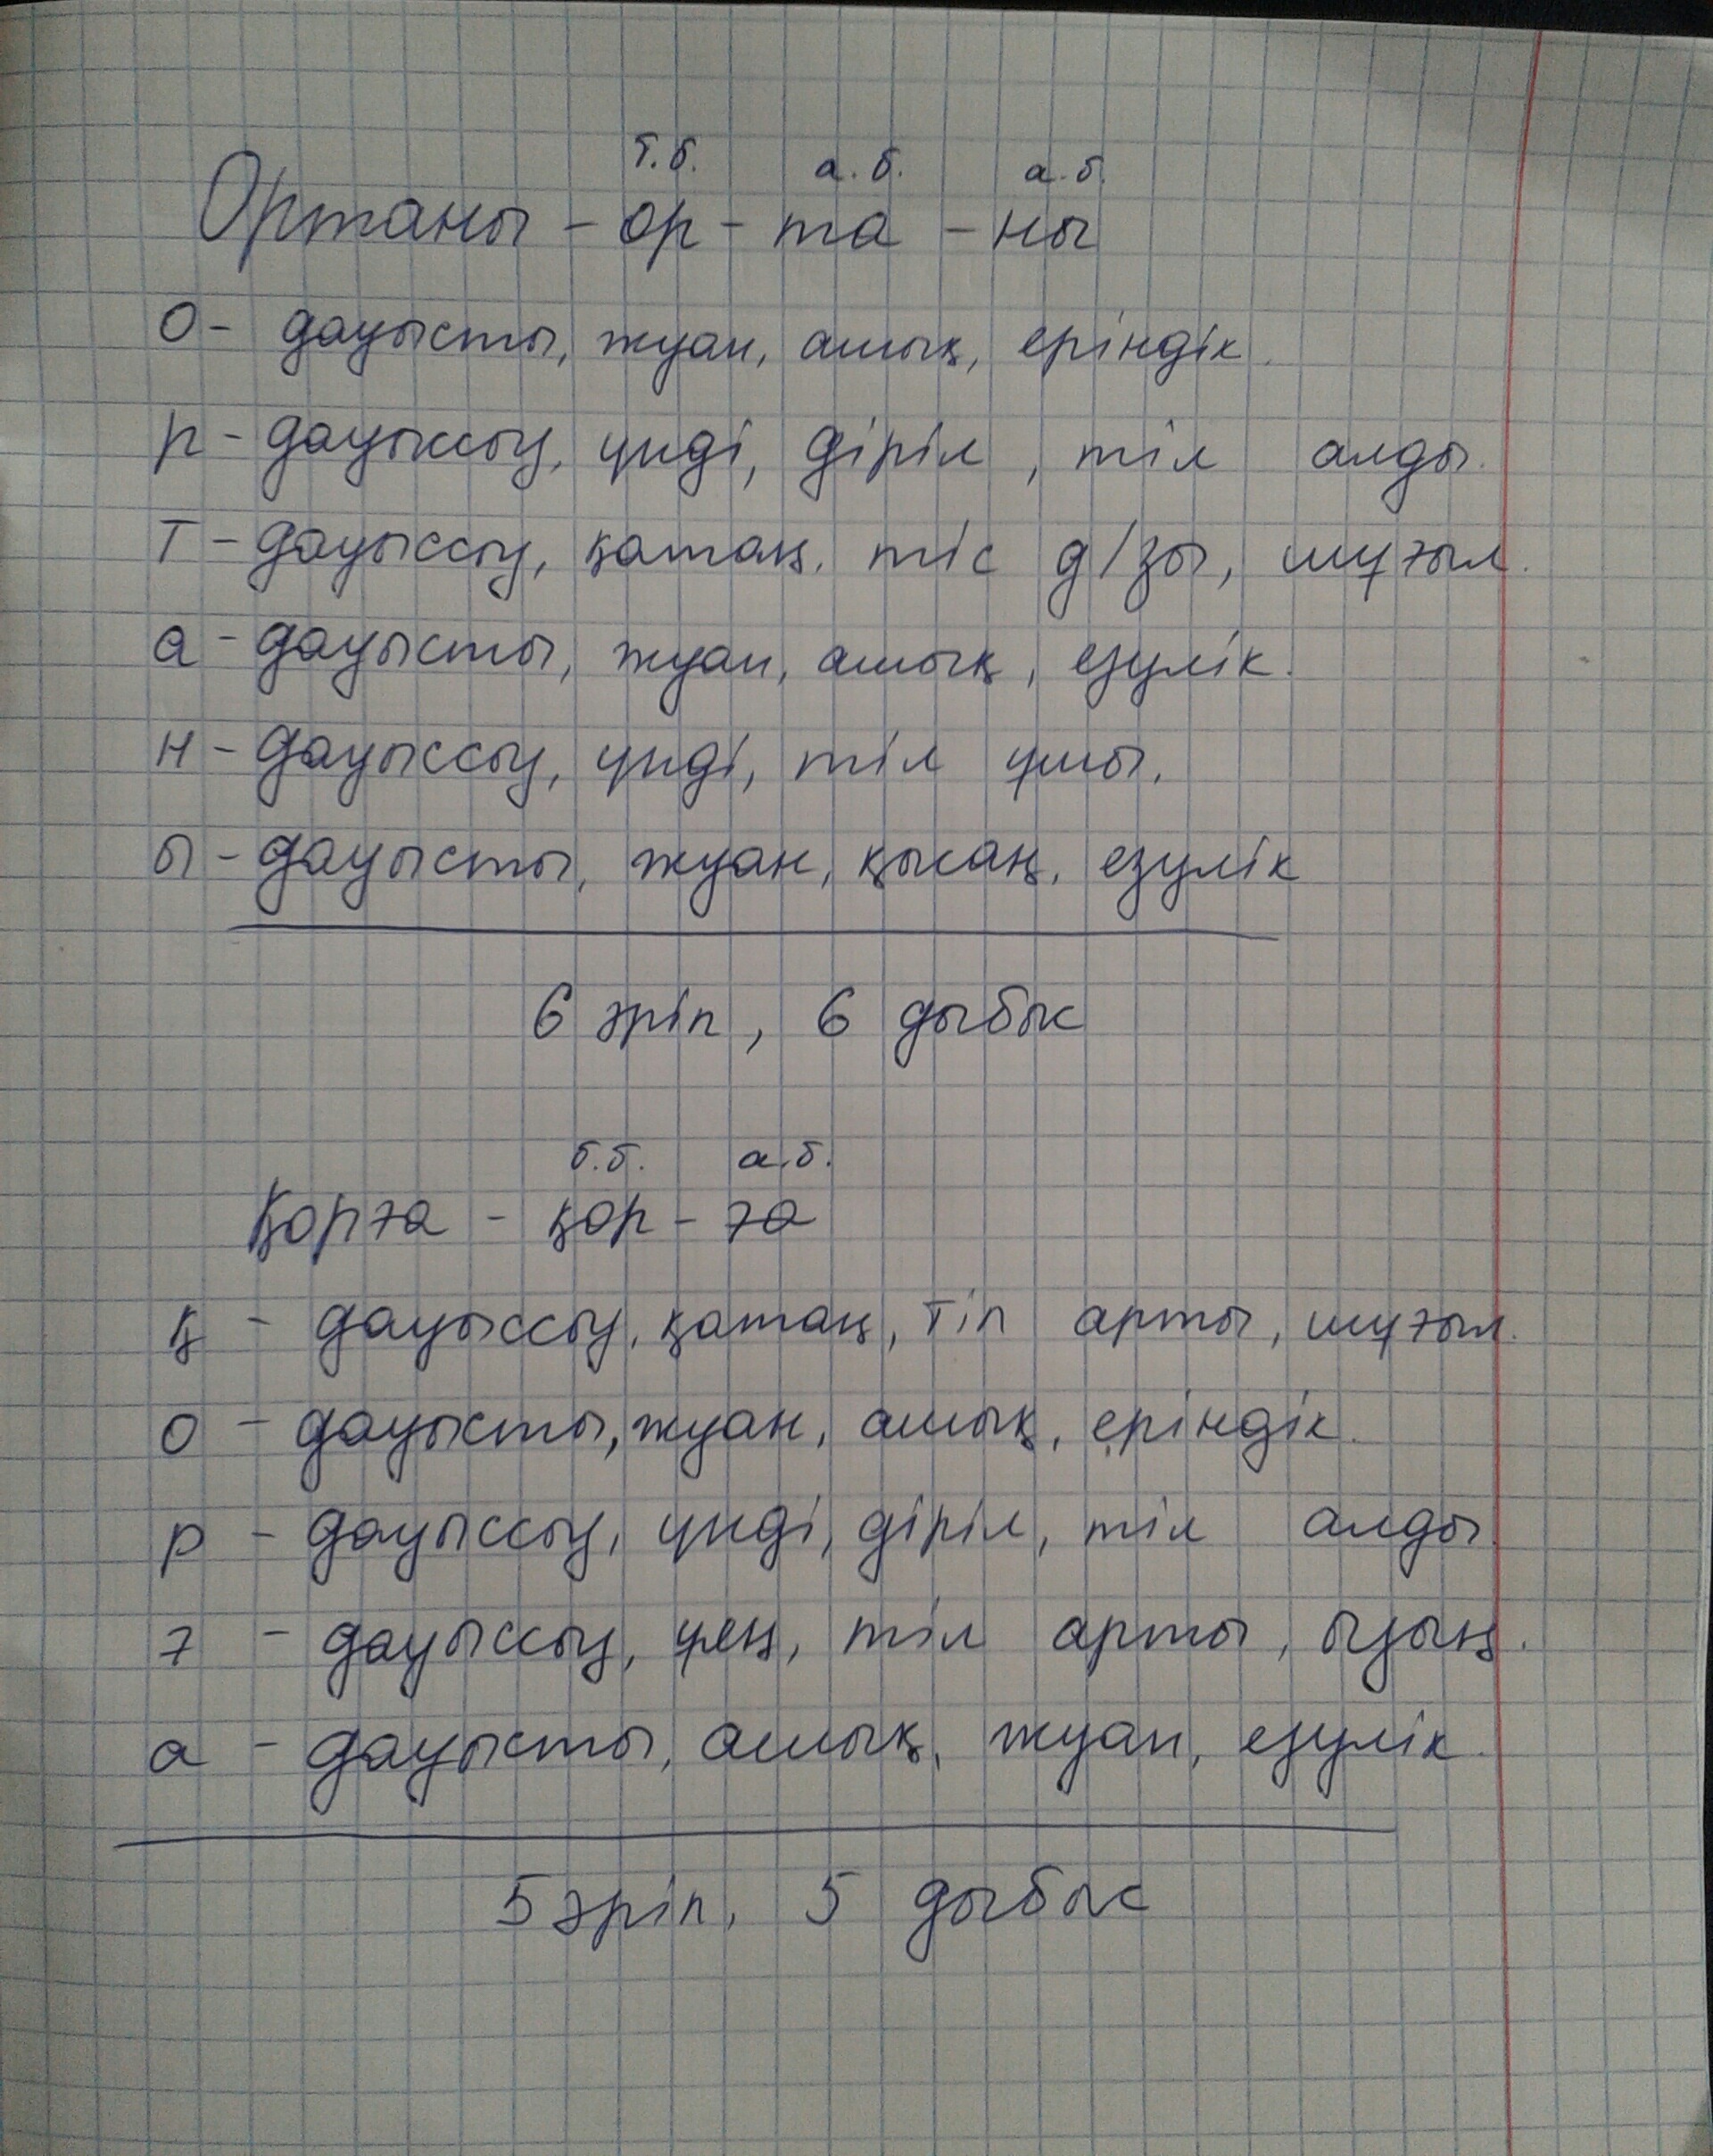 т.б. а.б. а.б.
Ортаны - ор - та - ны
О - дауысты, жуан, ашық, еріндік.
р - дауыссыз, үнді, діріл, тіл алды.
Т - дауыссыз, қатаң, тіс д/зы, шұғыл.
а - дауысты, жуан, ашық, езулік.
н - дауыссыз, үнді, тіл ұшы.
ы - дауысты, жуан, қысаң, езулік
6 әріп, 6 дыбыс
б.б. а.б.
Қорға - қор - ға
қ - дауыссыз, қатаң, тіл арты, шұғыл.
о - дауысты, жуан, ашық, еріндік.
р - дауыссыз, үнді, діріл, тіл алды.
ғ - дауыссыз, ұяң, тіл арты, ызың.
а - дауысты, ашық, жуан, езулік.
5 әріп, 5 дыбыс